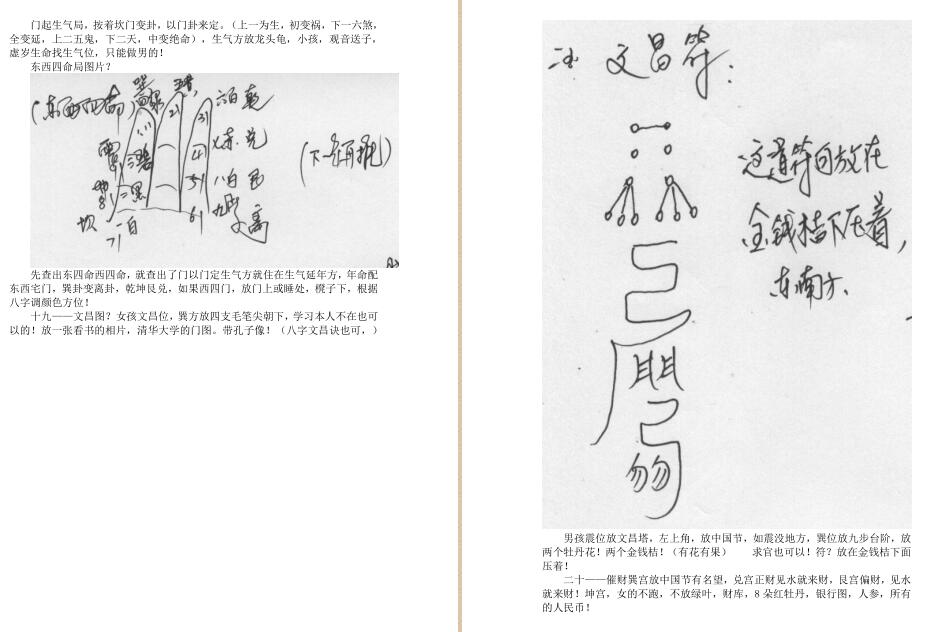 门起生气局，按着坎门变卦，以门卦来定。（上一为生，初变祸，下一六煞，
全变延，上二五鬼，下二天，中变绝命），生气方放龙头龟，小孩，观音送子，
虚岁生命找生气位，只能做男的！
东西四命局图片？
(东西四命)
31 六白 乾
41 七赤 兑
51 八白 艮
61 九 离
坎 一白
71
二黑
三碧
21
(下一年再推)
先查出东四命西四命，就查出了门以门定生气方就住在生气延年方，年命配
东西宅门，巽卦变离卦，乾坤艮兑，如果西四门，放门上或睡处，櫈子下，根据
八字调颜色方位！
十九——文昌图？女孩文昌位，巽方放四支毛笔尖朝下，学习本人不在也可
以的！放一张看书的相片，清华大学的门图。带孔子像！（八字文昌诀也可，）
文昌符：
这道符可放在
金钱桔下压着，
东南方.
男孩震位放文昌塔，左上角，放中国节，如震没地方，巽位放九步台阶，放
两个牡丹花！两个金钱桔！（有花有果） 求官也可以！符？放在金钱桔下面
压着！
二十——催财巽宫放中国节有名望，兑宫正财见水就来财，艮宫偏财，见水
就来财！坤宫，女的不跑，不放绿叶，财库，8 朵红牡丹，银行图，人参，所有
的人民币！